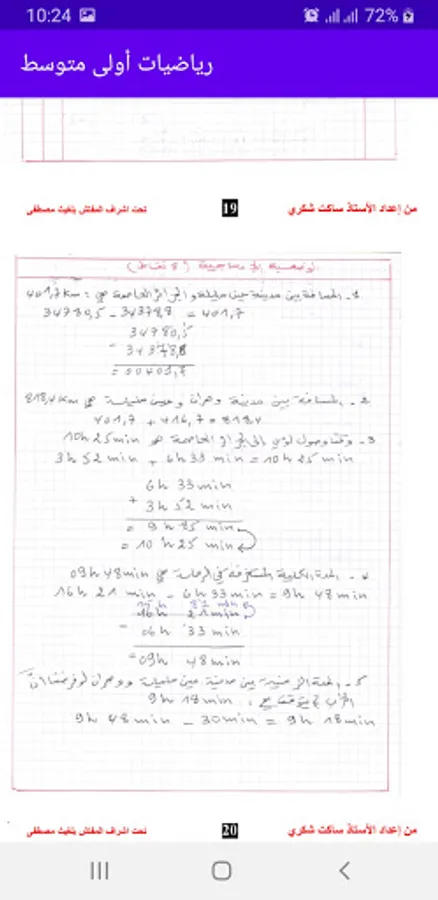 10:24
72%
رياضيات أولى متوسط
من إعداد الأستاذ ساكت شكري
19
تحت اشراف المفتش بلغيث مصطفى
الوضعية الإدماجية (8 نقاط)
1- المسافة بين مدينة عين مليلة و الجزائر العاصمة هي: 401,7 Km
34780,5 - 34378,8 = 401,7
34780,5
- 34378,8
= 00401,7
2- المسافة بين مدينة وهران وعين مليلة هي 818,4 Km
401,7 + 416,7 = 818,4
3- وقت وصول لؤي إلى الجزائر العاصمة هو 10h 25min
3h 52 min + 6h 33 min = 10h 25 min
6h 33 min
+ 3h 52 min
= 9h 85 min
= 10h 25 min
4- المدة الكلية المستغرقة في الرحلة هي 09h 48min
16h 21 min - 6h 33 min = 9h 48min
15h 81 min
16h 21 min
- 06h 33 min
= 09h 48 min
5- المدة الزمنية بين مدينة عين مليلة ووهران لو فرضنا أن
لم يتوقف هي: 9h 18min
9h 48min - 30min = 9h 18min
من إعداد الأستاذ ساكت شكري
20
تحت اشراف المفتش بلغيث مصطفى